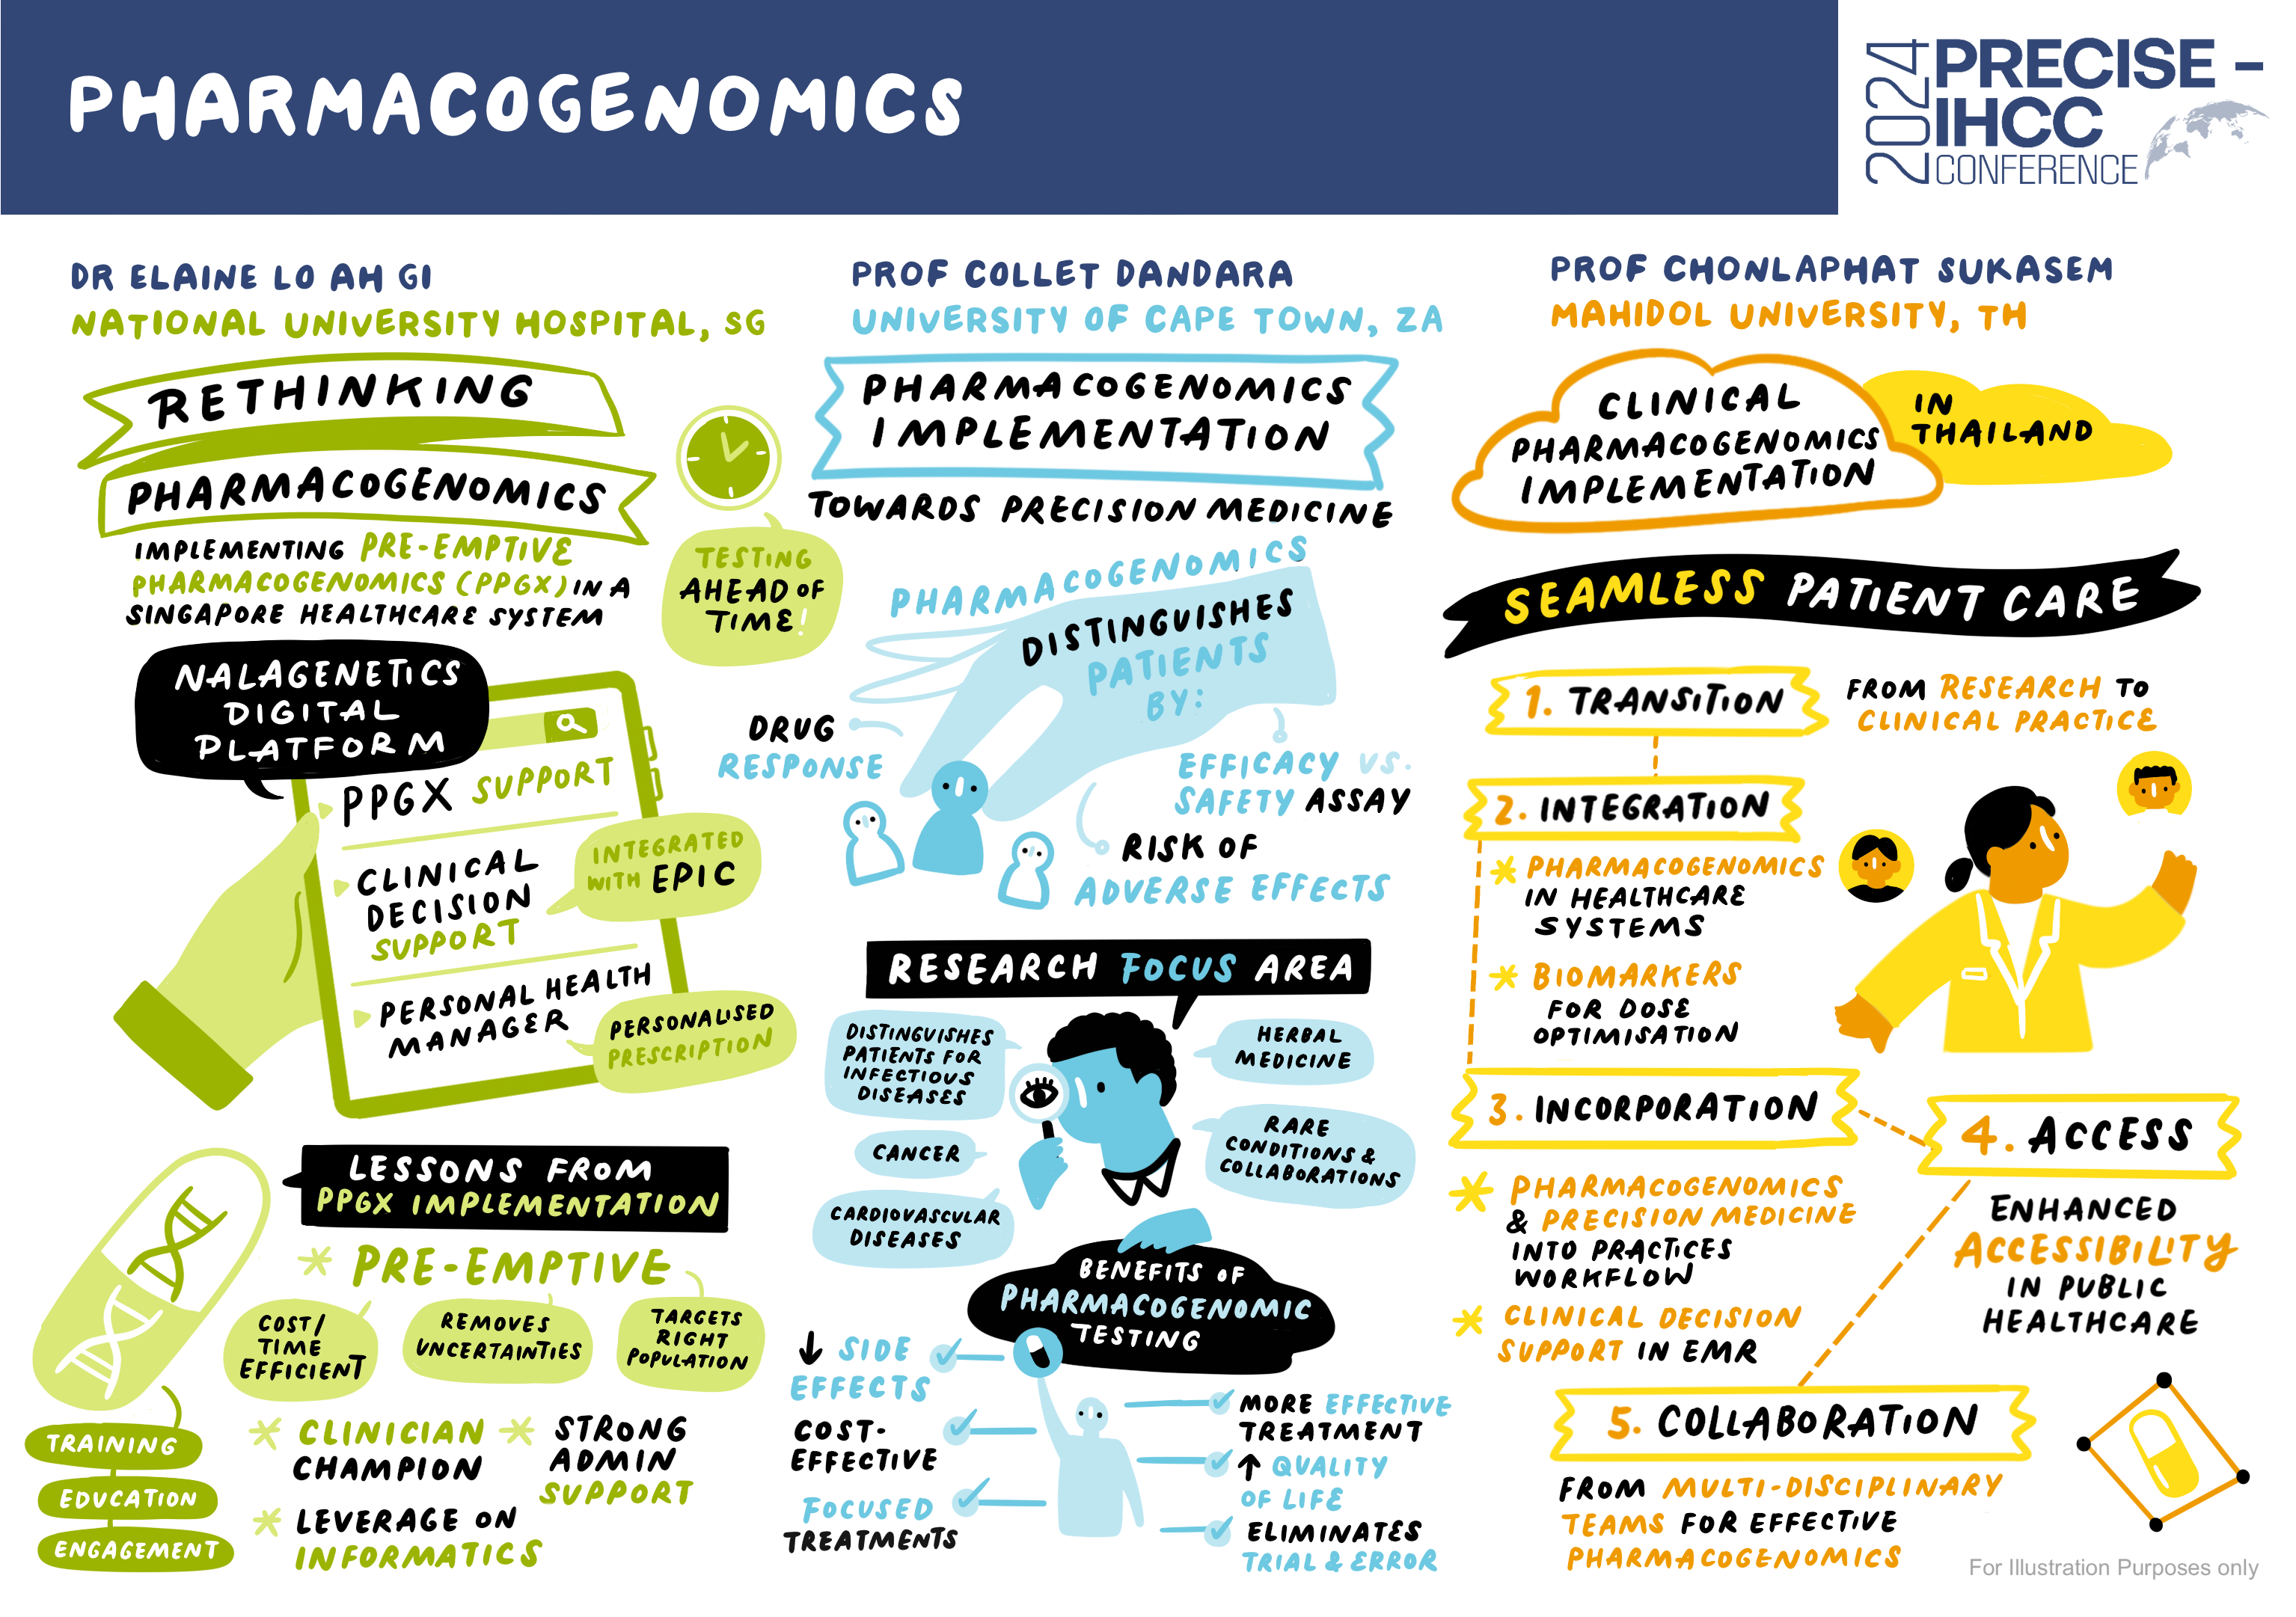 PHARMACOGENOMICS
2024
PRECISE –
IHCC
CONFERENCE
DR ELAINE LO AH GI
NATIONAL UNIVERSITY HOSPITAL, SG
RETHINKING
PHARMACOGENOMICS
IMPLEMENTING PRE-EMPTIVE
PHARMACOGENOMICS (PPGX) IN A
SINGAPORE HEALTHCARE SYSTEM
TESTING
AHEAD OF
TIME!
NALAGENETICS
DIGITAL
PLATFORM
PPGX SUPPORT
CLINICAL
DECISION
SUPPORT
INTEGRATED
WITH EPIC
PERSONAL HEALTH
MANAGER
PERSONALISED
PRESCRIPTION
LESSONS FROM
PPGX IMPLEMENTATION
PRE-EMPTIVE
COST/
TIME
EFFICIENT
REMOVES
UNCERTAINTIES
TARGETS
RIGHT
POPULATION
TRAINING
EDUCATION
ENGAGEMENT
CLINICIAN
CHAMPION
STRONG
ADMIN
SUPPORT
LEVERAGE ON
INFORMATICS
PROF COLLET DANDARA
UNIVERSITY OF CAPE TOWN, ZA
PHARMACOGENOMICS
IMPLEMENTATION
TOWARDS PRECISION MEDICINE
PHARMACOGENOMICS
DISTINGUISHES
PATIENTS
BY:
DRUG
RESPONSE
EFFICACY VS.
SAFETY ASSAY
RISK OF
ADVERSE EFFECTS
RESEARCH FOCUS AREA
DISTINGUISHES
PATIENTS FOR
INFECTIOUS
DISEASES
CANCER
CARDIOVASCULAR
DISEASES
HERBAL
MEDICINE
RARE
CONDITIONS &
COLLABORATIONS
BENEFITS OF
PHARMACOGENOMIC
TESTING
↓ SIDE
EFFECTS
COST-
EFFECTIVE
FOCUSED
TREATMENTS
MORE EFFECTIVE
TREATMENT
↑ QUALITY
OF LIFE
ELIMINATES
TRIAL & ERROR
PROF CHONLAPHAT SUKASEM
MAHIDOL UNIVERSITY, TH
CLINICAL
PHARMACOGENOMICS
IMPLEMENTATION
IN
THAILAND
SEAMLESS PATIENT CARE
1. TRANSITION
FROM RESEARCH TO
CLINICAL PRACTICE
2. INTEGRATION
PHARMACOGENOMICS
IN HEALTHCARE
SYSTEMS
BIOMARKERS
FOR DOSE
OPTIMISATION
3. INCORPORATION
PHARMACOGENOMICS
& PRECISION MEDICINE
INTO PRACTICES
WORKFLOW
CLINICAL DECISION
SUPPORT IN EMR
4. ACCESS
ENHANCED
ACCESSIBILITY
IN PUBLIC
HEALTHCARE
5. COLLABORATION
FROM MULTI-DISCIPLINARY
TEAMS FOR EFFECTIVE
PHARMACOGENOMICS
For Illustration Purposes only